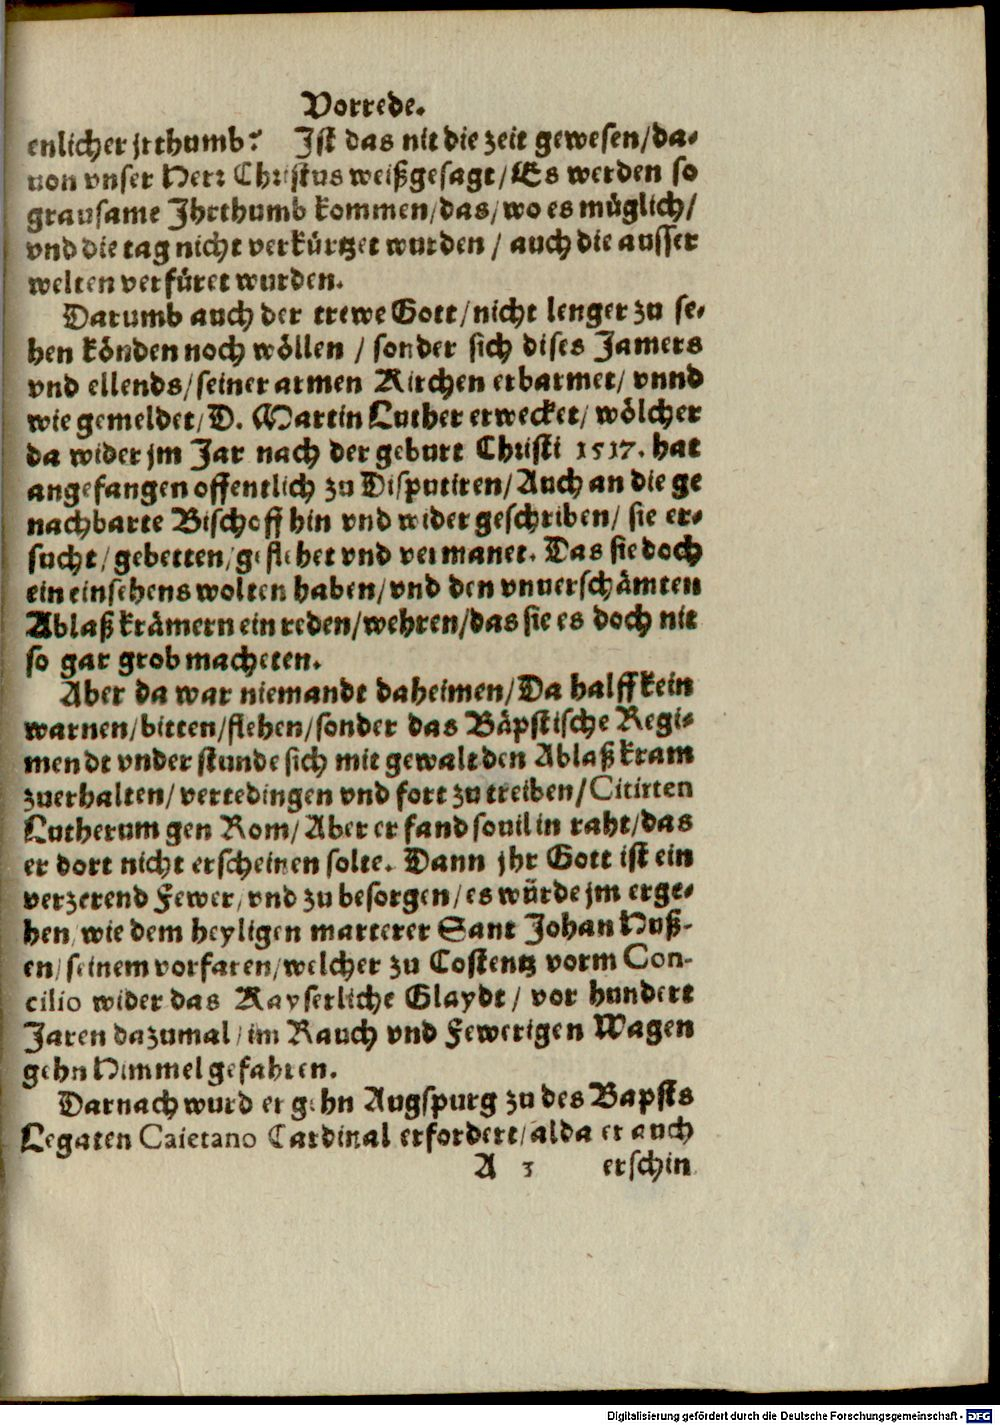 Vorrede.
enlicher jrthumb? Jst das nit die zeit gewesen/da-
uon vnser Herr Christus weißgesagt/Es werden so
grausame Jhrthumb kommen/das/wo es müglich/
vnd die tag nicht verkürtzet wurden/ auch die ausser
welten verfüret wurden.
Darumb auch der trewe Gott/nicht lenger zu se-
hen könden noch wöllen / sonder sich dises Jamers
vnd ellends/seiner armen Kirchen erbarmet/ vnnd
wie gemeldet/D. Martin Luther erwecket/ wölcher
da wider jm Jar nach der geburt Christi 1517. hat
angefangen offentlich zu Disputiren/Auch an die ge
nachbarte Bischoff hin vnd wider geschriben/ sie er-
sucht/gebetten/geflehet vnd vermanet. Das sie doch
ein einsehens wolten haben/vnd den vnuerschämten
Ablaß krämern ein reden/wehren/das sie es doch nit
so gar grob macheten.
Aber da war niemandt daheimen/Da halff kein
warnen/bitten/flehen/sonder das Bäpstische Regi-
mendt vnder stunde sich mit gewalt den Ablaß kram
zuerhalten/ vertedingen vnd fort zu treiben/Citirten
Lutherum gen Rom/Aber er fand souil in raht/das
er dort nicht erscheinen solte. Dann jhr Gott ist ein
verzerend Fewer/vnd zu besorgen/es würde jm erge-
hen/wie dem heyligen marterer Sant Johan Huß-
en/seinem vorfaren/welcher zu Costentz vorm Con-
cilio wider das Kayserliche Glaydt/ vor hundert
Jaren dazumal/im Rauch vnd Fewerigen Wagen
gehn Himmel gefahren.
Darnach wurd er gehn Augspurg zu des Bapsts
Legaten Caietano Cardinal erfordert/alda er auch
A 3 erschin
Digitalisierung gefördert durch die Deutsche Forschungsgemeinschaft - DFG